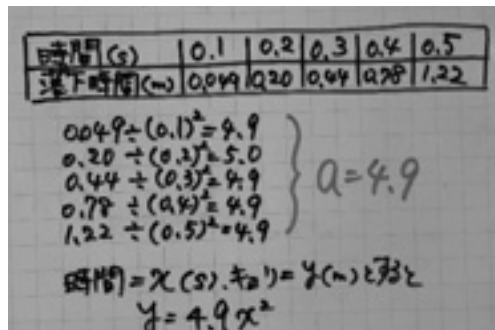 時間(s) 0.1 0.2 0.3 0.4 0.5
落下時間(m) 0.049 0.20 0.44 0.78 1.22
0.049÷(0.1)²=4.9
0.20÷(0.2)²=5.0
0.44÷(0.3)²=4.9
0.78÷(0.4)²=4.9
1.22÷(0.5)²=4.9
a=4.9
時間=x(s).キョリ=y(m)とすると
y=4.9x²